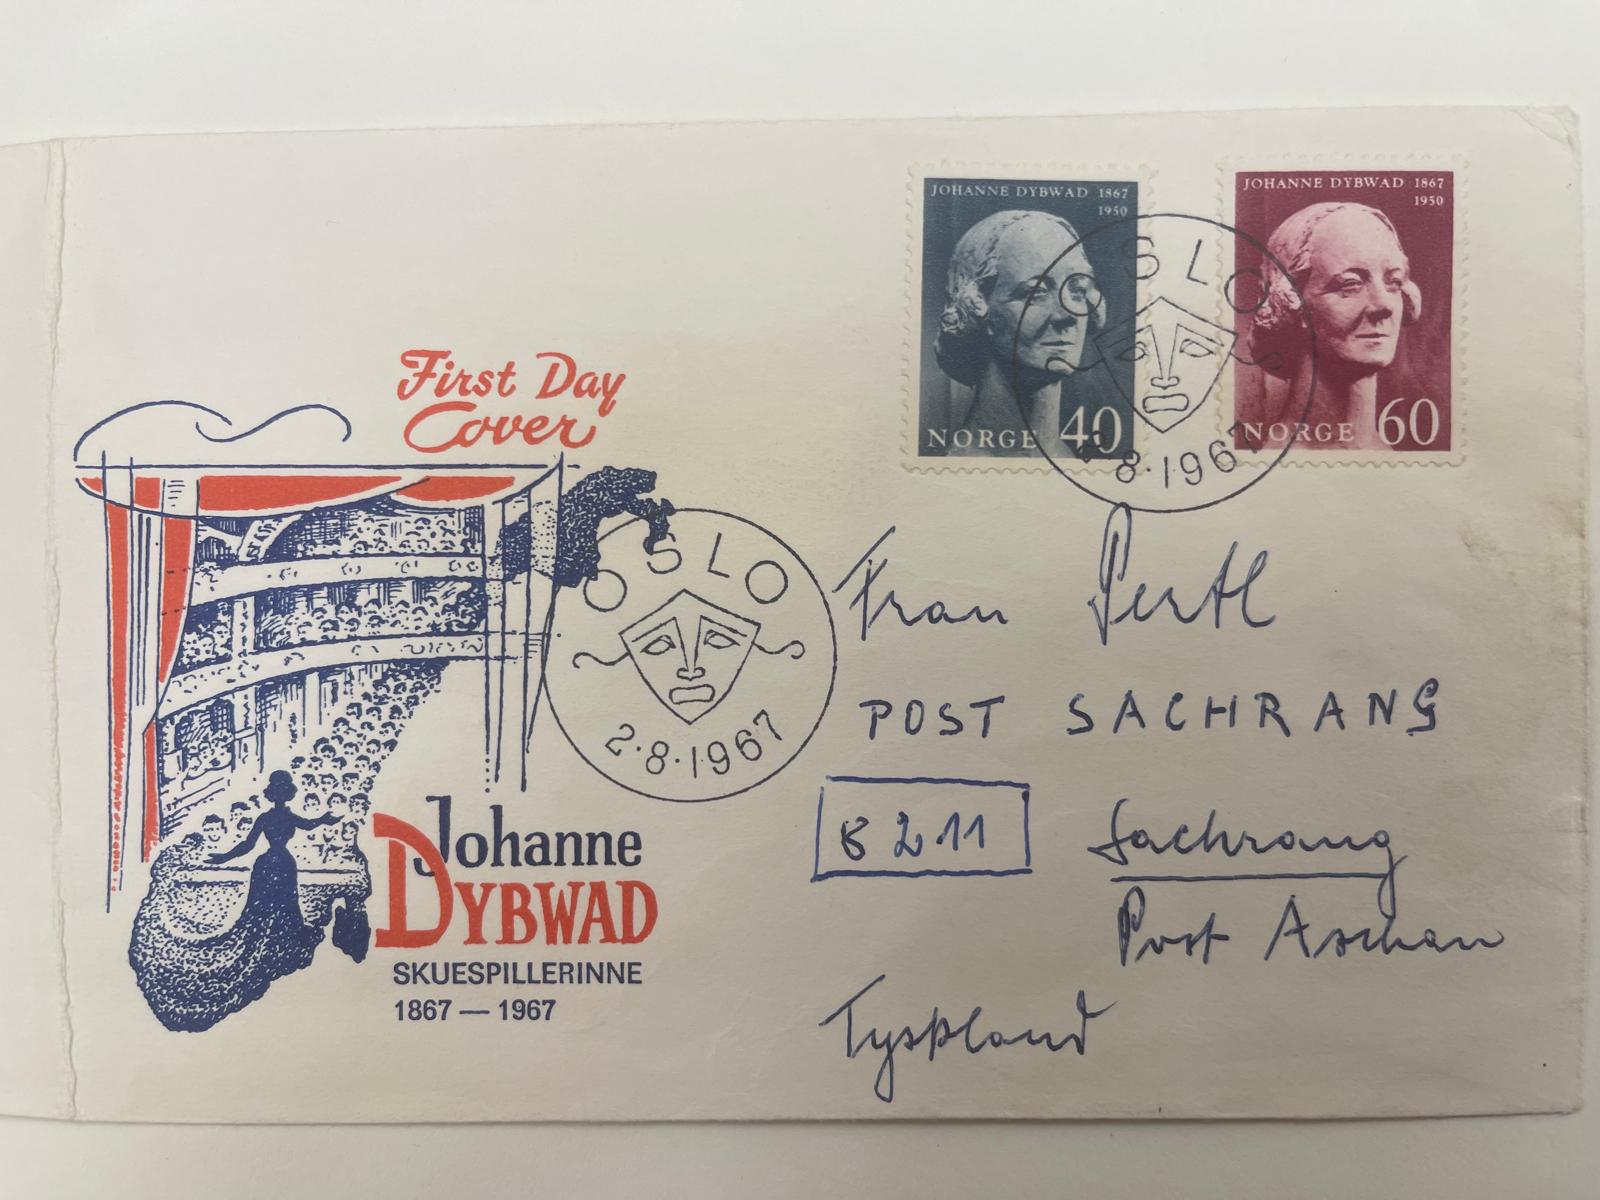 JOHANNE DYBWAD 1867
1950
NORGE 40
JOHANNE DYBWAD 1867
1950
NORGE 60
OSLO
2.8.1967
First Day
Cover
OSLO
2.8.1967
Johanne
DYBWAD
SKUESPILLERINNE
1867 — 1967
Frau Pertl
POST SACHRANG
8211 Sachrang
Post Aschau
Tyskland